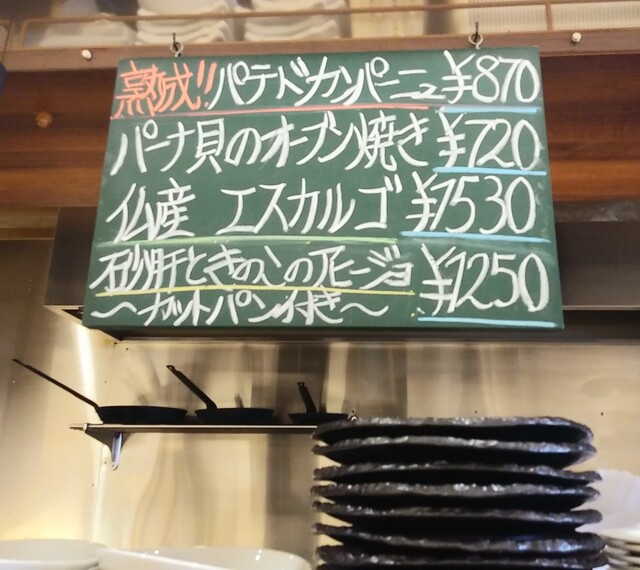 熟成!!パテドカンパーニュ ¥870
パーナ貝のオーブン焼き ¥720
仏産 エスカルゴ ¥1530
砂肝ときのこのアヒージョ ¥1250
~カットパン付き~